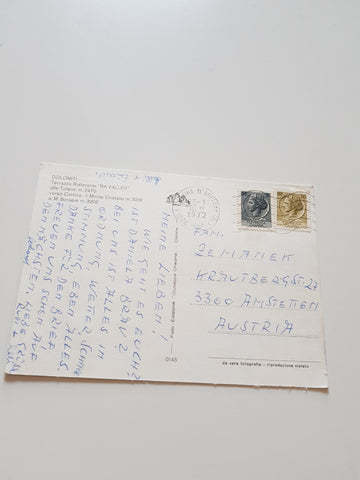 DOLOMITI
Terrazza Ristorante "RA VALLES"
alle Tofane m. 2470
verso Cortina, il Monte Cristallo m. 3216
e M. Sorapis m. 3205
MEINE LIEBEN!
WIE GEHT ES EUCH?
IST DANIELA BRAV?
BEI UNS IST ALLES IN
ORDNUNG, WETTER SCHÖN
STIMMUNG, EBEN ALLES.
DANKE FÜR DEN BRIEF
FREUEN UNS SCHON AUF
DEN NÄCHSTEN. LIEBE GRÜSSE
0145
1972
FAM.
ZEMANEK
KRAUTBERGSTR. 27
3300 AMSTETTEN
AUSTRIA
da vera fotografia - riproduzione vietata